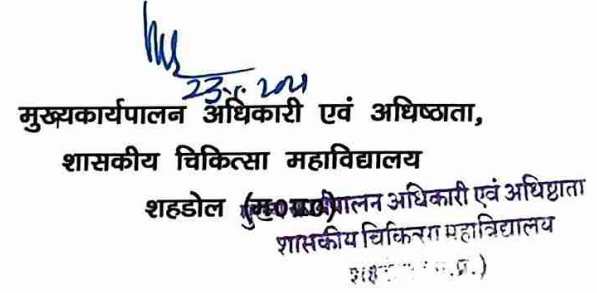 23 2021
मुख्यकार्यपालन अधिकारी एवं अधिष्ठाता,
शासकीय चिकित्सा महाविद्यालय
शहडोल (म०प्र०)
पालन अधिकारी एवं अधिष्ठाता
शासकीय चिकित्सा महाविद्यालय